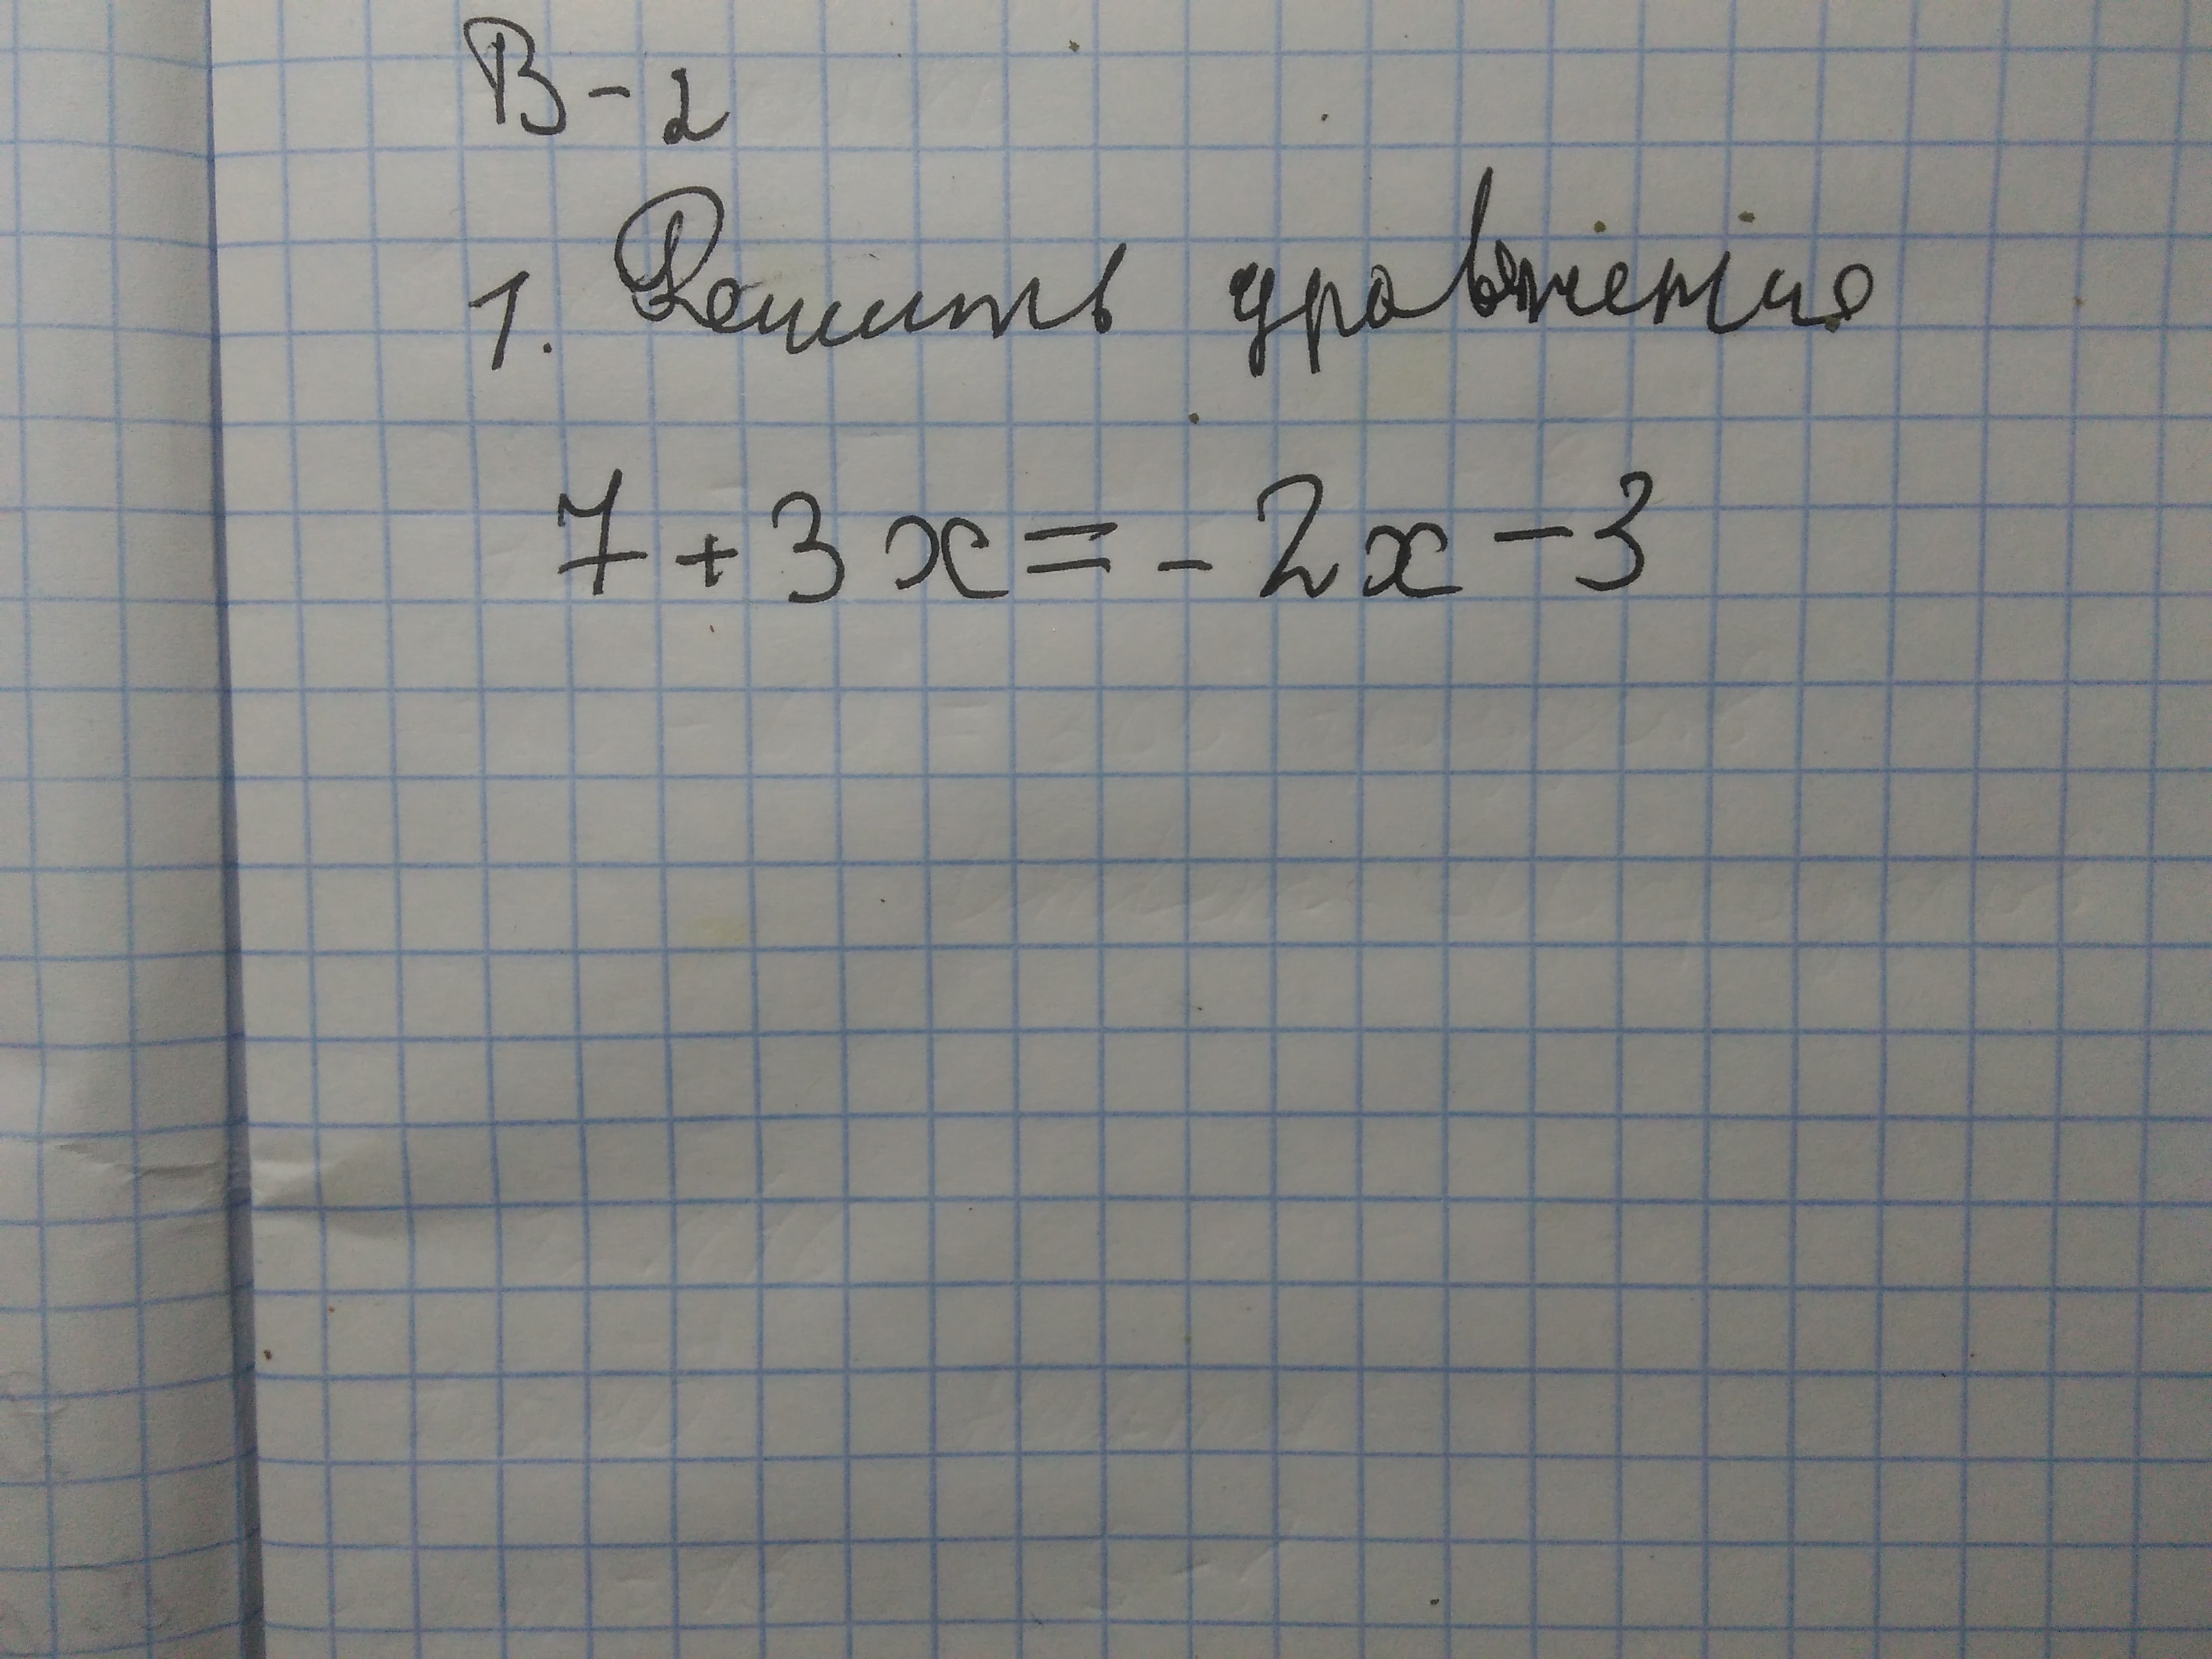 В-2
1. Решить уравнение
7+3x=-2x-3